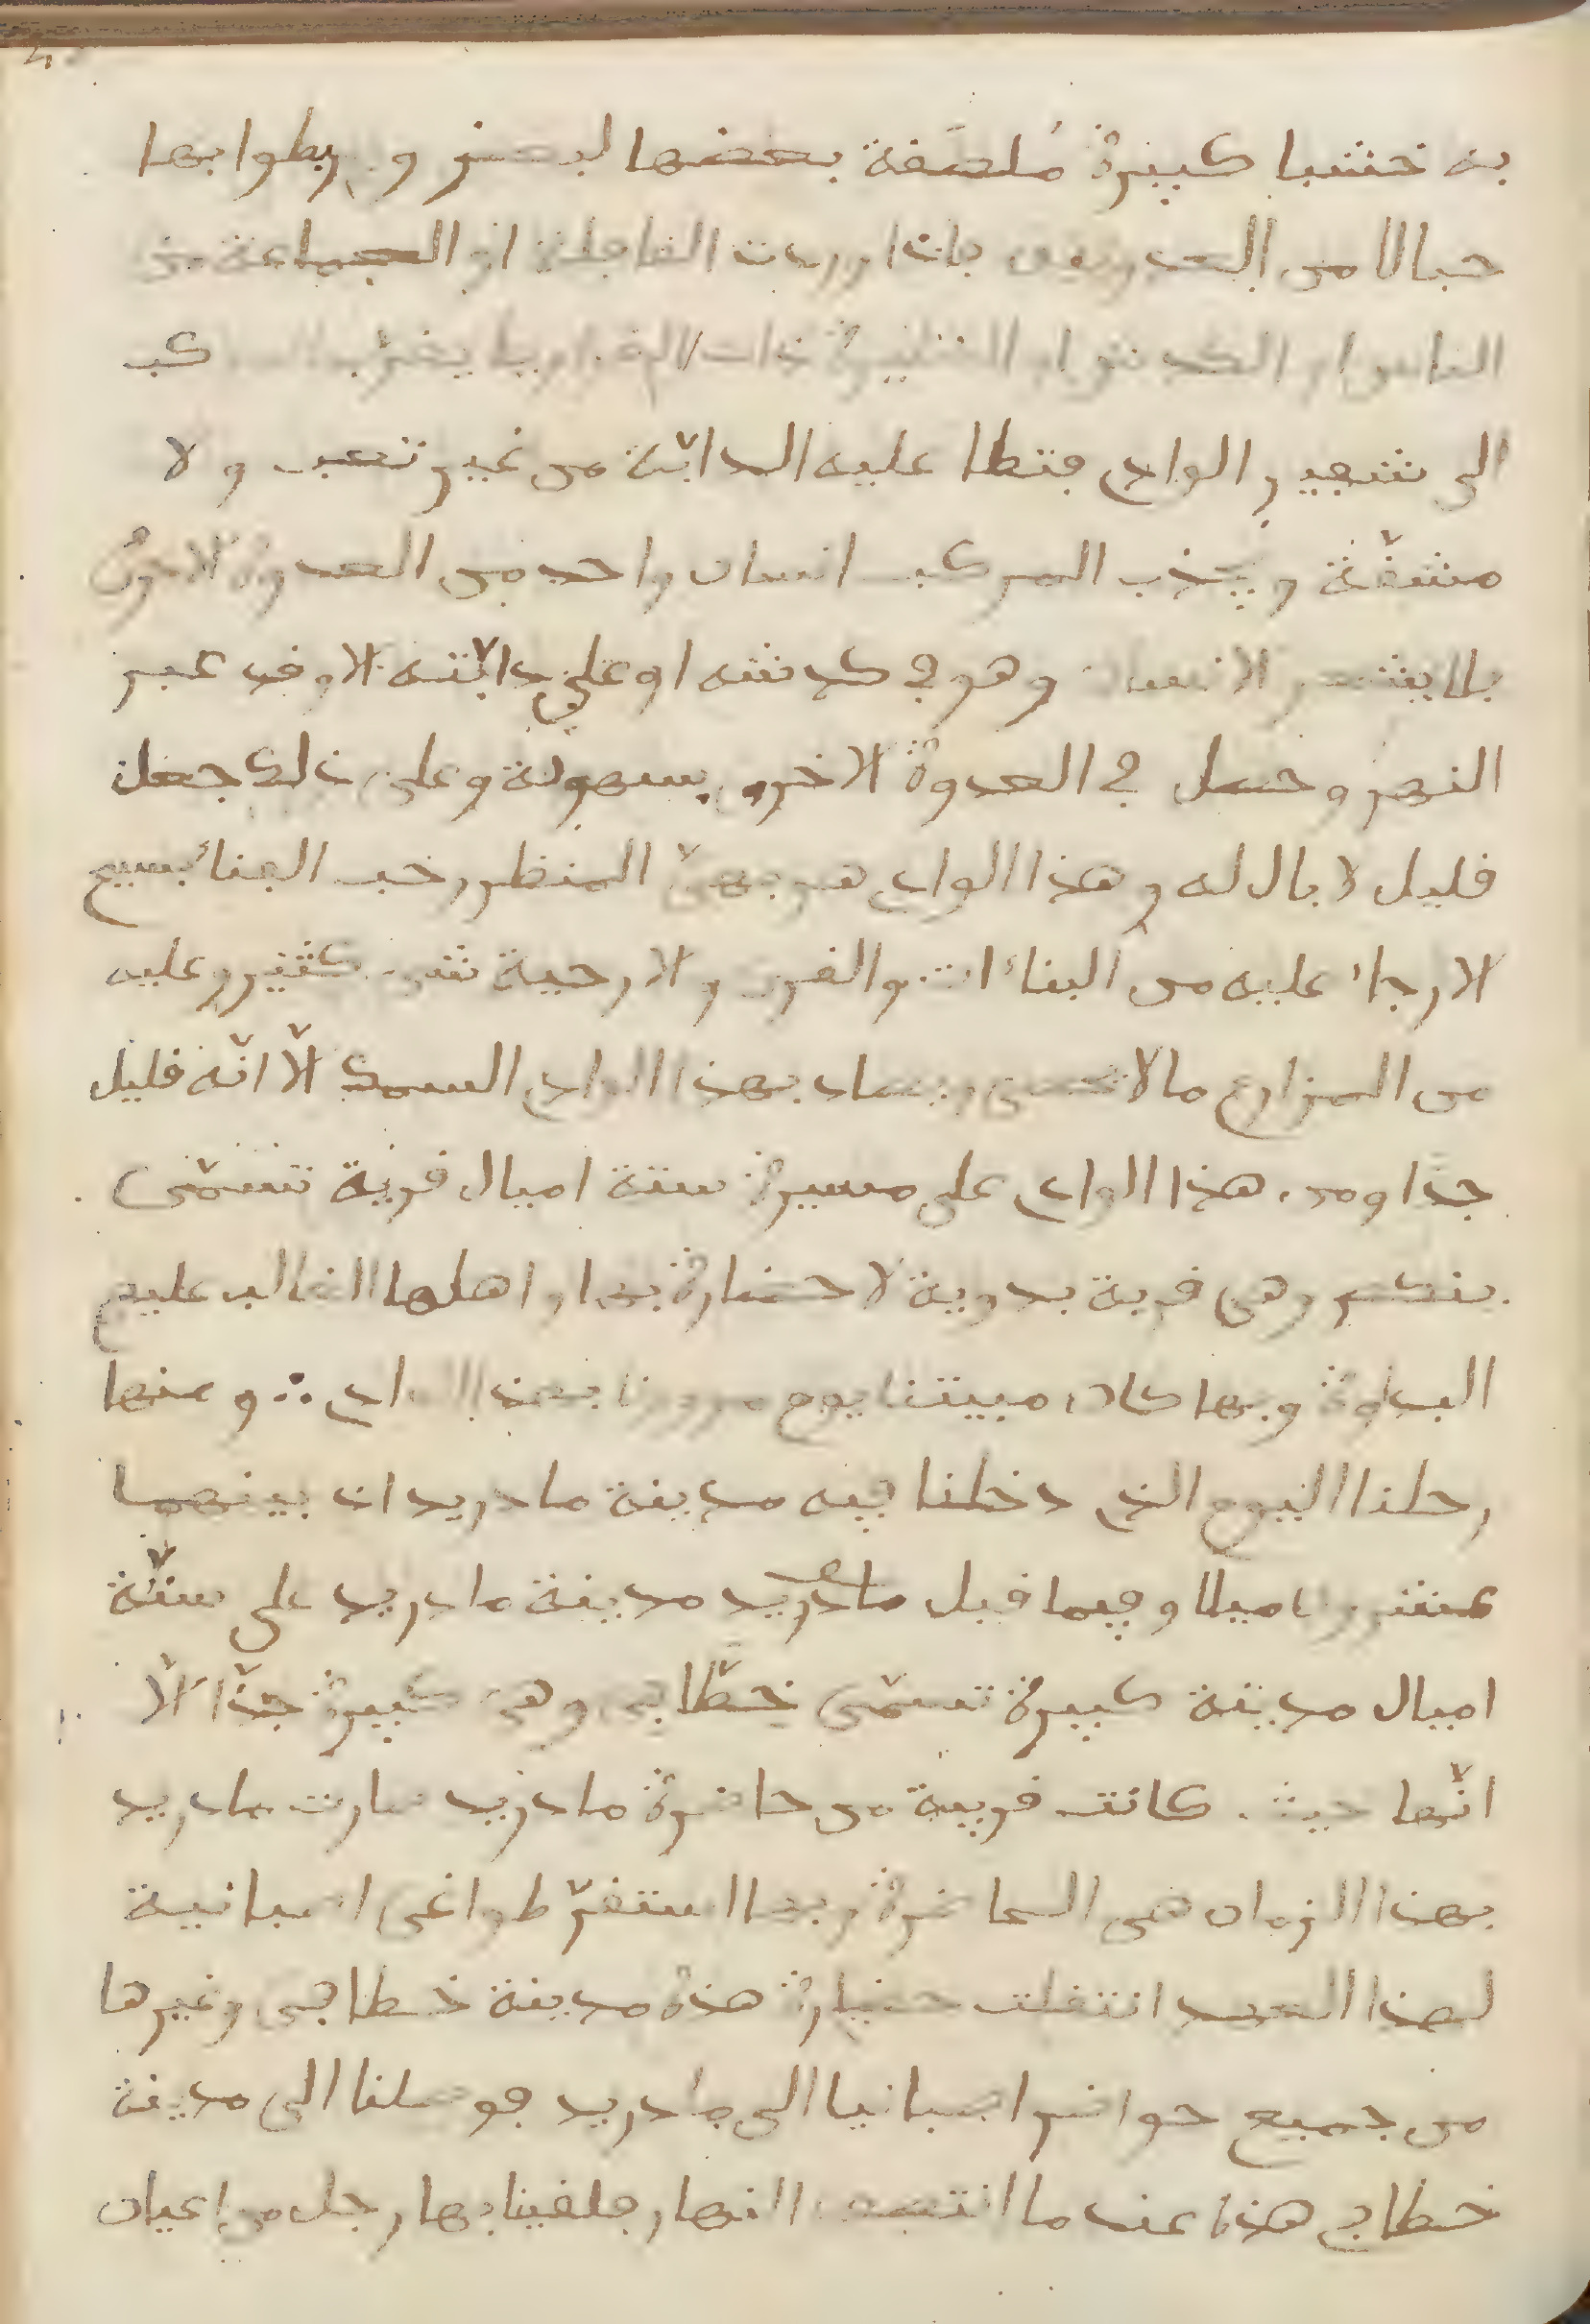 به خشبا كبيرة مُلصَقة بعضها لبعض و ربطوا بها
حبالا من العدوتين فاذا وردت القافلة او الجماعة من
الناس او الكدش او الكثيرة ذات يقرب المركب
الى شفير الواد فتطا عليه الدابّة من غير تعب و لا
مشقّة ويجذب المركب انسان واحد من العدوة الاخرى
فلا يشعر الانسان وهو في كدشه او على دابّته الا وقد عبر
النهر وحصل في العدوة الاخرى بسهولة وعلى ذلك جعل
قليل لا بال له وهذا الواد هو بهىّ المنظر رحب الفنا فسيح
الارجاء عليه من البناءات والقرى والارحية شى كثير وعليه
من المزارع ما لا يحصى ويصاد بهذا الواد السمك الاّ انّه قليل
جدا ومن هذا الواد على مسيرة ستة اميال قرية تسمّى
بنكس وهى قرية بدوية لا حضارة بها واهلها الغالب عليهم
البداوة وبها كان مبيتنا يوم مرورنا بهذا الواد ∴ ومنها
رحلنا اليوم الذي دخلنا فيه مدينة مادريد اذ بينهما
عشرون ميلا وفيما قبل مادريد مدينة مادريد على ستّة
اميال مدينة كبيرة تسمّى خطّافى وهى كبيرة جدّا الاّ
انّها حيث كانت قريبة من حاضرة مادريد صارت مادريد
بهذا الزمان هى الحاضرة وبها استقرّ طواغى اصبانية
لهذا العهد انتقلت حضارة هذه مدينة خطافى وغيرها
من جميع حواضر اصبانيا الى مادريد فوصلنا الى مدينة
خطافى هذه عند ما انتصف النهار فلقينا بها رجل من اعيان